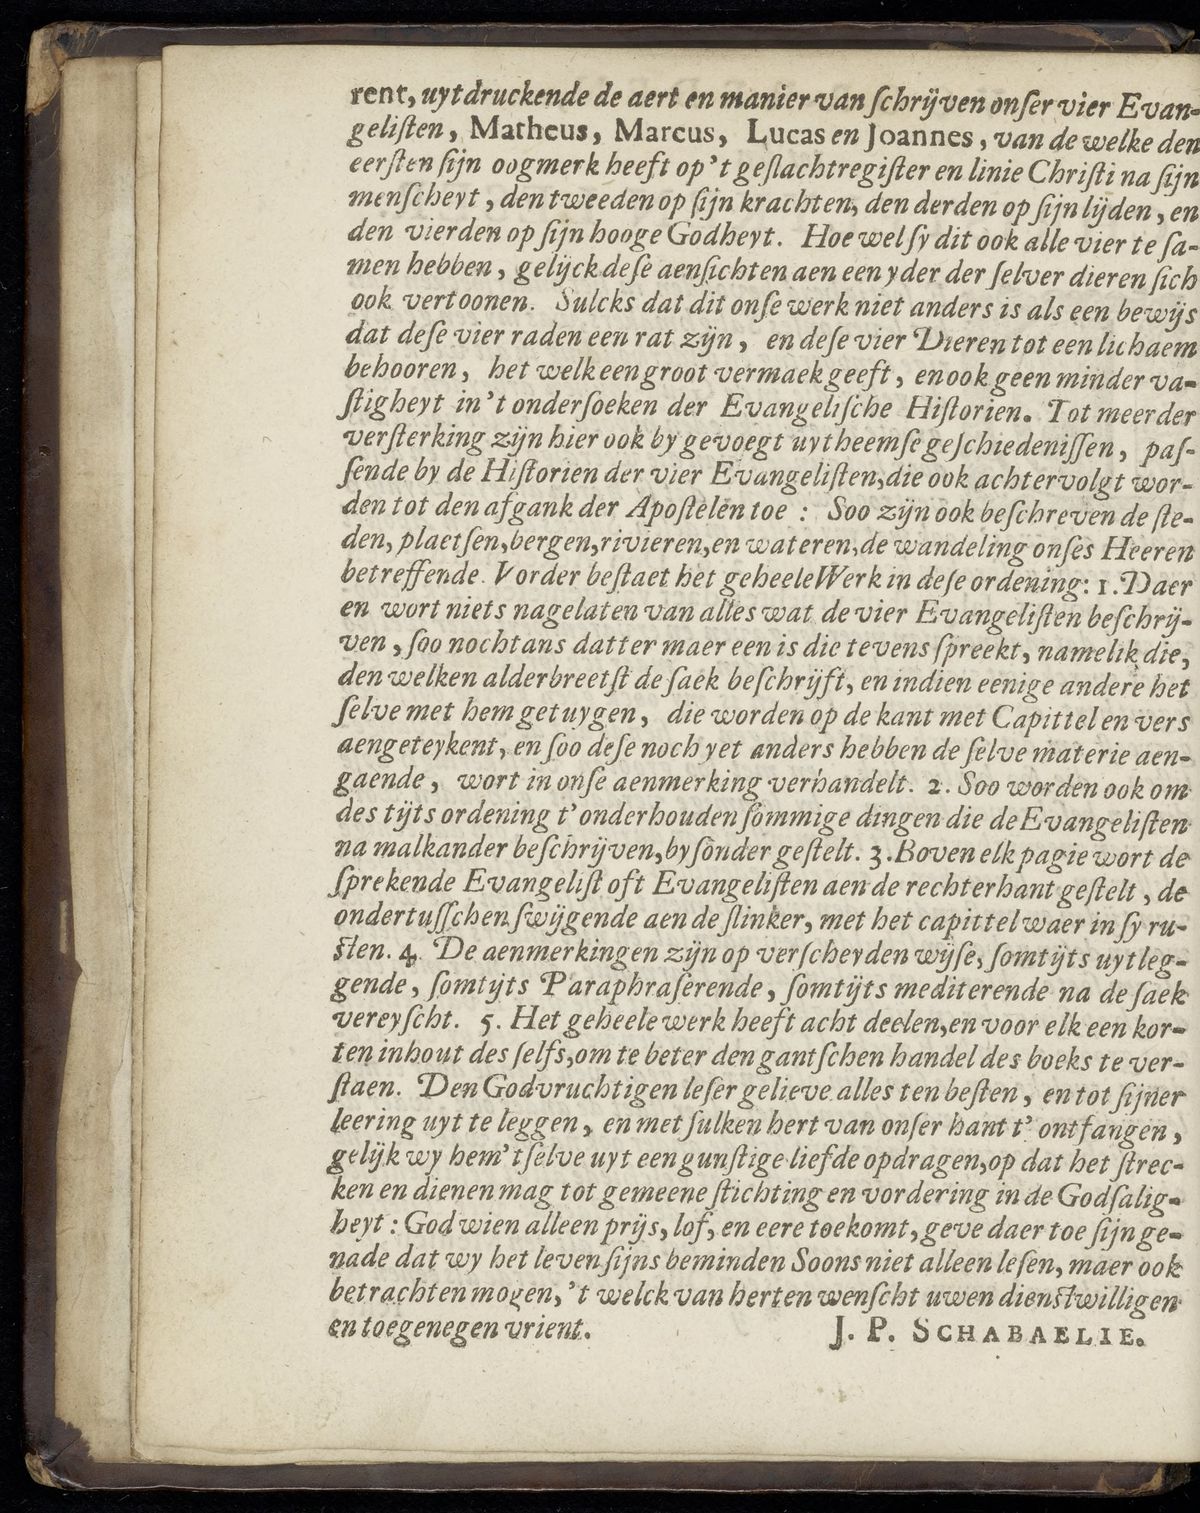 rent, uytdruckende de aert en manier van schrijven onser vier Evan-
gelisten, Matheus, Marcus, Lucas en Joannes, van de welke den
eersten sijn oogmerk heeft op 't geslachtregister en linie Christi na sijn
menscheyt, den tweeden op sijn krachten, den derden op sijn lijden, en
den vierden op sijn hooge Godheyt. Hoewel sy dit ook alle vier te sa-
men hebben, gelijck dese aensichten aen een yder der selver dieren sich
ook vertoonen. Sulcks dat dit onse werk niet anders is als een bewijs
dat dese vier raden een rat zijn, en dese vier Dieren tot een lichaem
behooren, het welk een groot vermaek geeft, en ook geen minder va-
stigheyt in 't ondersoeken der Evangelische Historien. Tot meerder
versterking zijn hier ook by gevoegt uytheemse geschiedenissen, pas-
sende by de Historien der vier Evangelisten, die ook achtervolgt wor-
den tot den afgank der Apostelen toe : Soo zijn ook beschreven de ste-
den, plaetsen, bergen, rivieren, en wateren, de wandeling onses Heeren
betreffende. Vorder bestaet het geheele Werk in dese ordening: 1. Daer
en wort niets nagelaten van alles wat de vier Evangelisten beschrij-
ven, soo nochtans datter maer een is die tevens spreekt, namelik die,
den welken alderbreetst de saek beschrijft, en indien eenige andere het
selve met hem getuygen, die worden op de kant met Capittel en vers
aengeteykent, en soo dese noch yet anders hebben de selve materie aen-
gaende, wort in onse aenmerking verhandelt. 2. Soo worden ook om
des tijts ordening t' onderhouden sommige dingen die de Evangelisten
na malkander beschrijven, bysonder gestelt. 3. Boven elk pagie wort de
sprekende Evangelist oft Evangelisten aen de rechterhant gestelt, de
ondertusschen swijgende aen de slinker, met het capittel waer in sy ru-
sten. 4. De aenmerkingen zijn op verscheyden wijse, somtijts uytleg-
gende, somtijts Paraphraserende, somtijts mediterende na de saek
vereyscht. 5. Het geheele werk heeft acht deelen, en voor elk een kor-
ten inhout des selfs, om te beter den gantschen handel des boeks te ver-
staen. Den Godvruchtigen leser gelieve alles ten besten, en tot sijner
leering uyt te leggen, en met sulken hert van onser hant t' ontfangen,
gelijk wy hem 't selve uyt een gunstige liefde opdragen, op dat het strec-
ken en dienen mag tot gemeene stichting en vordering in de Godsalig-
heyt : God wien alleen prijs, lof, en eere toekomt, geve daer toe sijn ge-
nade dat wy het leven sijns beminden Soons niet alleen lesen, maer ook
betrachten mogen, 't welck van herten wenscht uwen dienstwilligen
en toegenegen vrient. J. P. SCHABAELIE.